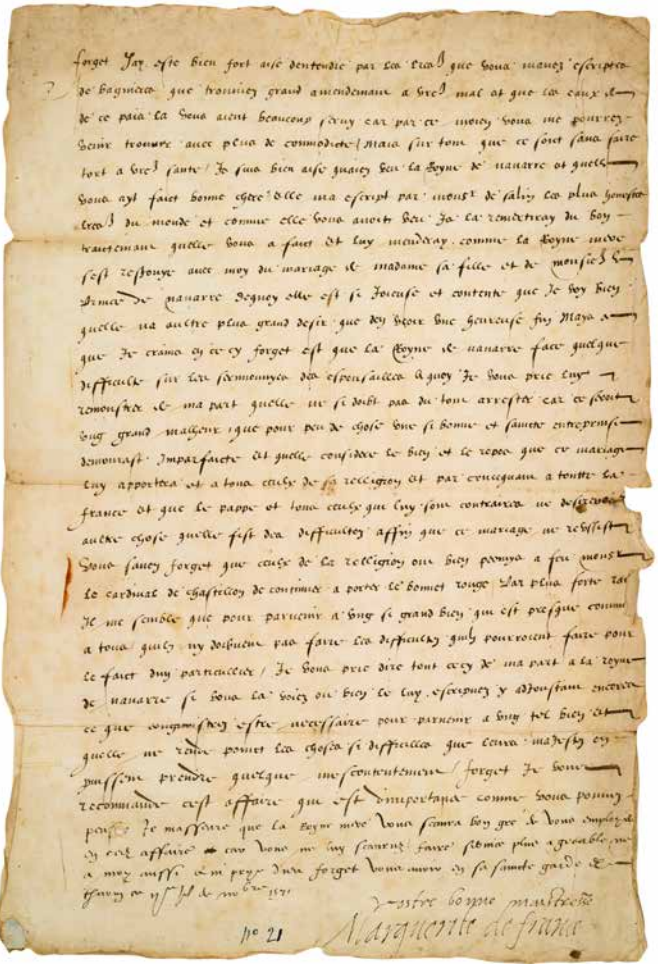 forget Jay este bien fort aise dentendre par les lres que vous mavez escriptes
de bagnieres que trouviez grand amendement a vre mal et que les eaux
de ce pais la vous aient beaucoup servy car par ce moien vous me pourrez
venir trouver avec plus de commodicte Mais sur tout que ce soit sans faire
tort a vre sante Je suis bien aise quaiez veu la Royne de navarre et quelle
vous ayt faict bonne chere elle ma escript par monsr de salin les plus honestes
lres du monde et comme elle vous avoit veu Je la remertiray du bon
traitement quelle vous a faict et luy manderay comme la Royne mere
sest resjouye avec moy du mariage de madame sa fille et de monsieur le
Prince de navarre dequoy elle est si Joieuse et contente que Je voy bien
quelle na aultre plus grand desir que den veoir une heureuse fin Mays ce
que Je crains en cecy forget est que la Royne de navarre face quelque
difficulte sur les serimonyes des espousailles a quoy Je vous prie luy
remonstrer de ma part quelle ne si doibt pas du tout arrester car ce seroit
ung grand malheur que pour peu de chose une si bonne et saincte entreprinse
demourast Imparfaicte et quelle considere le bien et le repos que ce mariage
luy apportera et a tous ceulx de sa relligion et par consequant a toutte la
france et que le pappe et tous ceulx qui luy sont contraires ne desirent
aultre chose quelle fist des difficultez affin que ce mariage ne reussist
Vous savez forget que ceulx de la relligion ont bien permys a feu monsr
le cardinal de chastillon de continuer a porter le bonnet rouge Par plus forte
Il me semble que pour parvenir a ung si grand bien qui est presque commun
a tous quilz ny doibvent pas faire les difficultez quilz pourroient faire pour
le faict dun particullier Je vous prie dire tout cecy de ma part a la royne
de navarre si vous la voiez ou bien le luy escripvez y adjoustant encores
ce que congnoistrez estre necessaire pour parvenir a ung tel bien et
quelle ne rende point les choses si difficilles que leurs majestez en
puissent prendre quelque mescontentement forget Je vous
recommande cest affaire qui est dimportance comme vous pouvez
penser Je masseure que la Royne mere vous scaura bon gre de vous employer
en cest affaire car vous ne luy scauriez faire service plus agreable
a moy aussi et prye Dieu forget vous avoir en sa saincte garde de
thurin ce Jor de novbre 1571
Vostre bonne maistresse
Marguerite de france
no 21